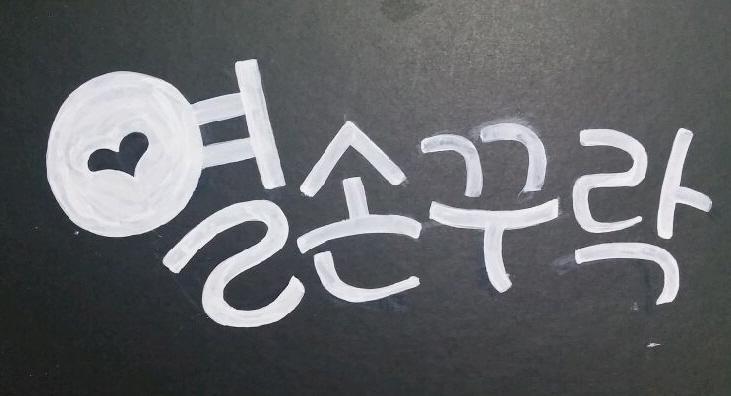 열손꾸락